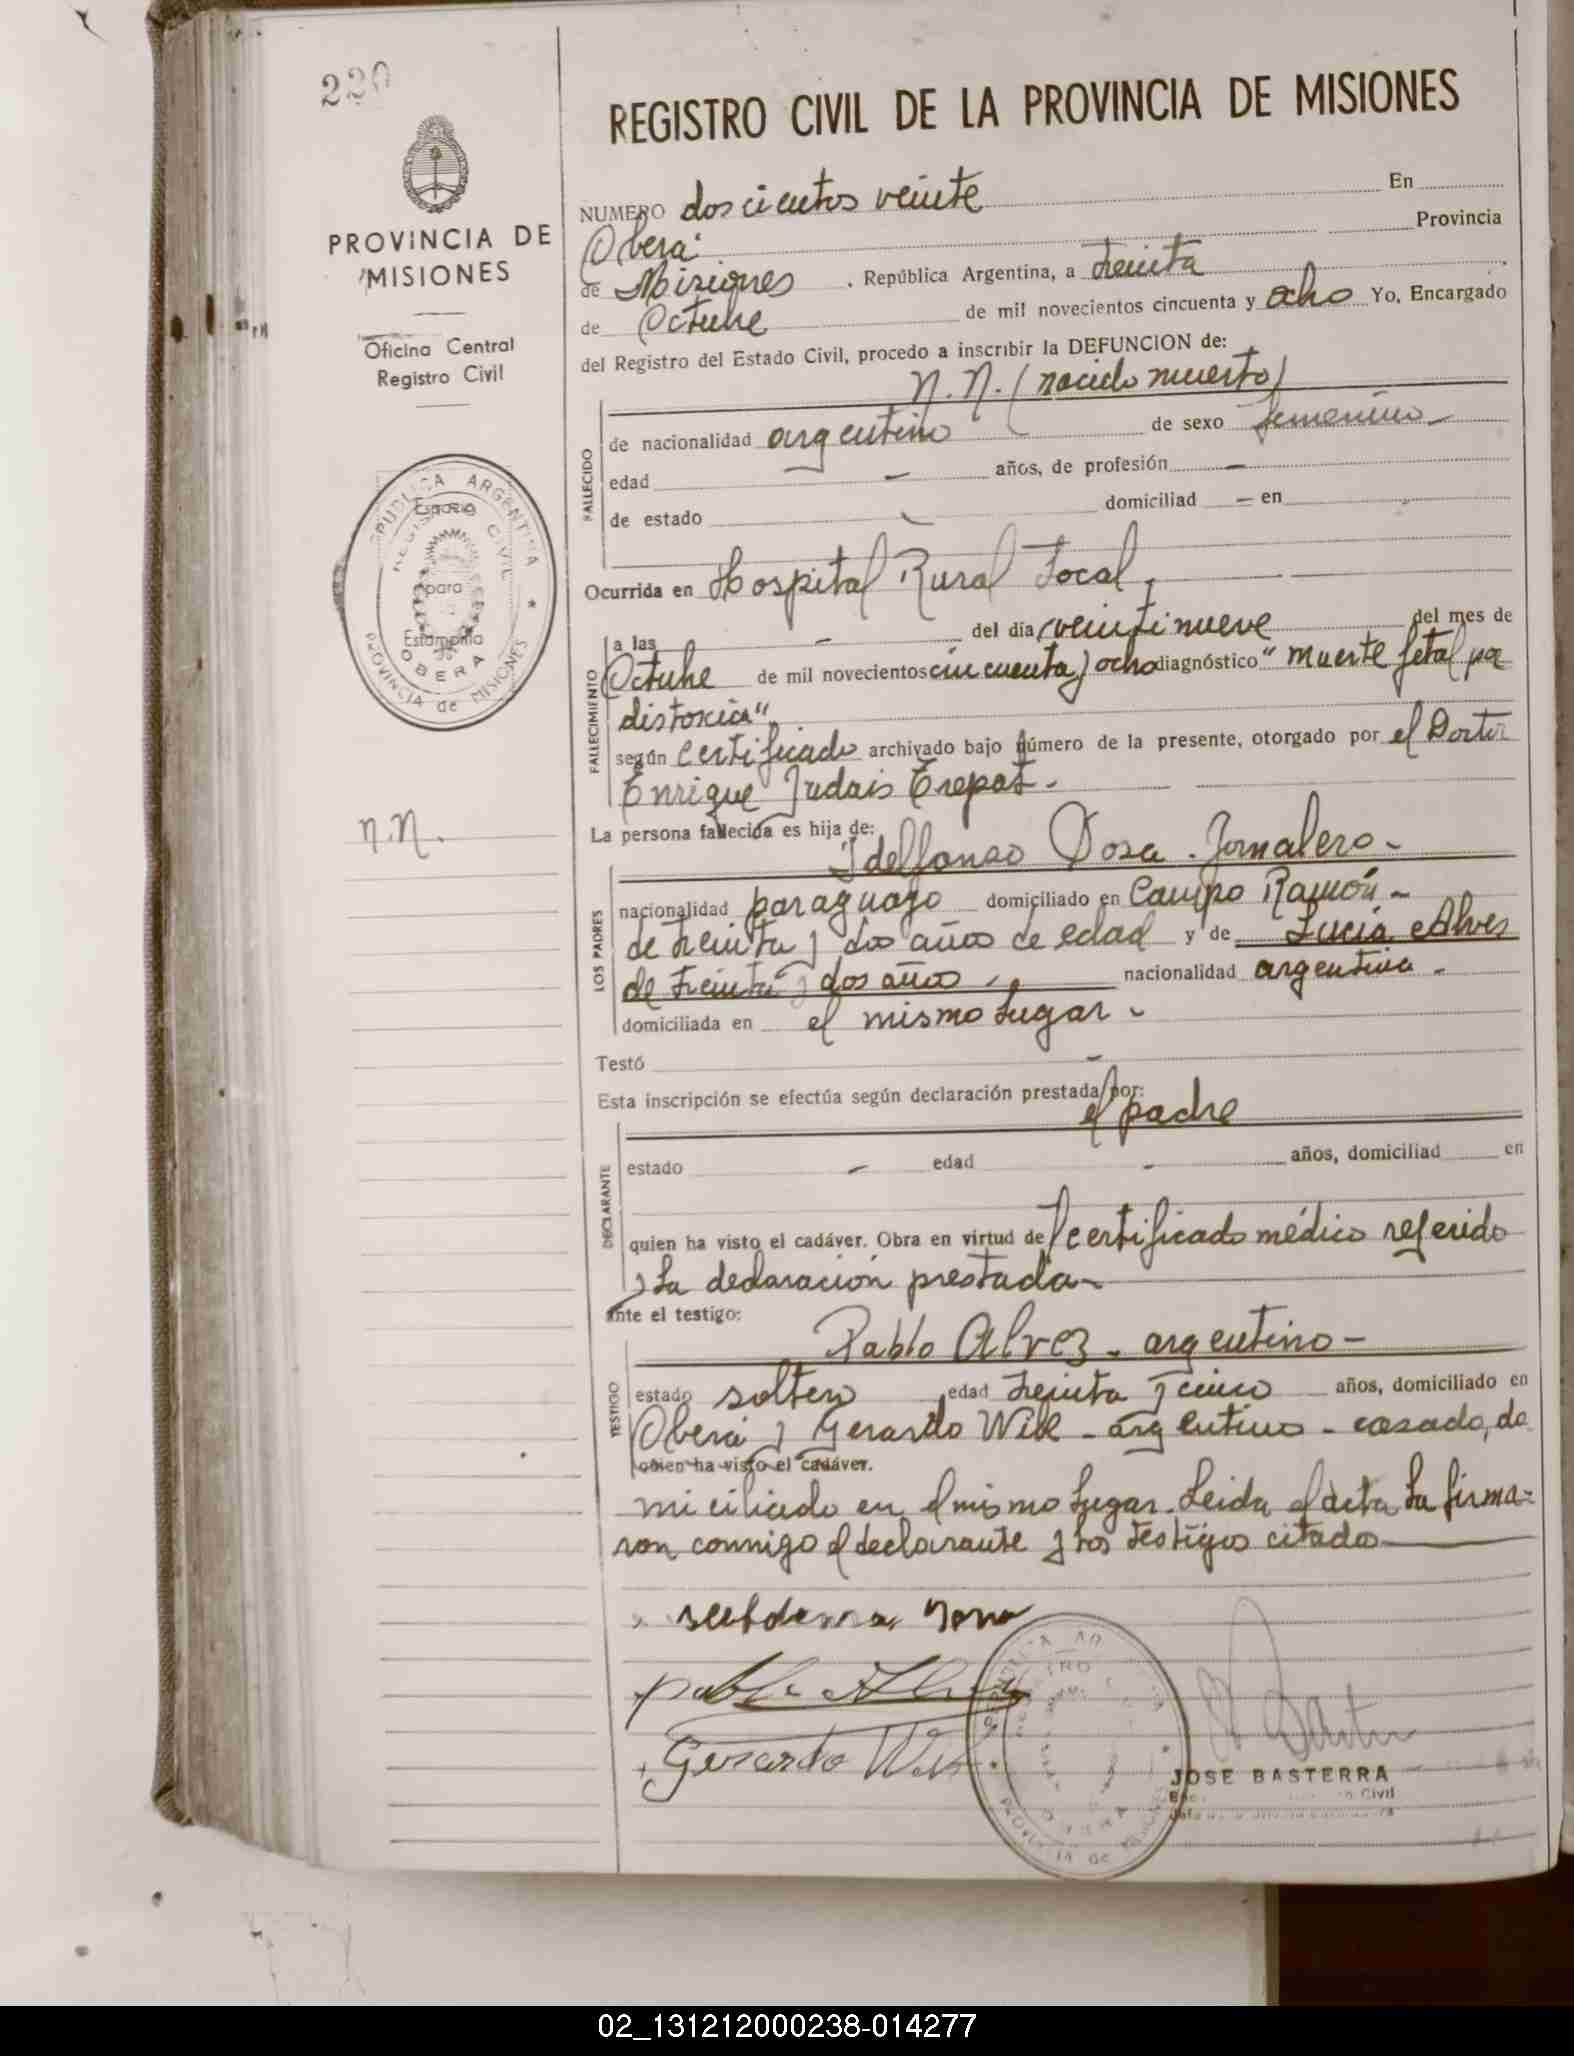 220
REGISTRO CIVIL DE LA PROVINCIA DE MISIONES
PROVINCIA DE
MISIONES
Oficina Central
Registro Civil
NUMERO doscientos veinte En
Oberá Provincia
de Misiones . República Argentina, a treinta
de Octubre de mil novecientos cincuenta y ocho Yo, Encargado
del Registro del Estado Civil, procedo a inscribir la DEFUNCION de:
N.N. (nacido muerto)
FALLECIDO
de nacionalidad argentino de sexo femenino -
edad - años, de profesión -
de estado - domiciliad - en
REPUBLICA ARGENTINA
REGISTRO CIVIL
Espacio
para
Estampilla
OBERA
PROVINCIA de MISIONES
Ocurrida en Hospital Rural Local,
FALLECIMIENTO
a las - del día veintinueve del mes de
Octubre de mil novecientos cincuenta y ocho diagnóstico "muerte fetal por
distoxia"
según certificado archivado bajo número de la presente, otorgado por el Doctor
Enrique Judais Trepat -
n.n.
La persona fallecida es hija de:
Idelfonso Dosa - Jornalero -
LOS PADRES
nacionalidad paraguayo domiciliado en Campo Ramón -
de treinta y dos años de edad y de Lucia Alves
de treinta y dos años nacionalidad argentina -
domiciliada en el mismo lugar -
Testó -
Esta inscripción se efectúa según declaración prestada por:
el padre
DECLARANTE
estado - edad - años, domiciliad en
quien ha visto el cadáver. Obra en virtud del certificado médico referido
y la declaración prestada -
ante el testigo:
Pablo Alvez - argentino -
TESTIGO
estado soltero edad treinta y cinco años, domiciliado en
Oberá y Gerardo Wile - argentino - casado, do
quien ha visto el cadáver.
miciliado en el mismo lugar. Leida el acta la firma=
ron conmigo el declarante y los testigos citados
Gerardo
JOSE BASTERRA
Civil
02_131212000238-014277